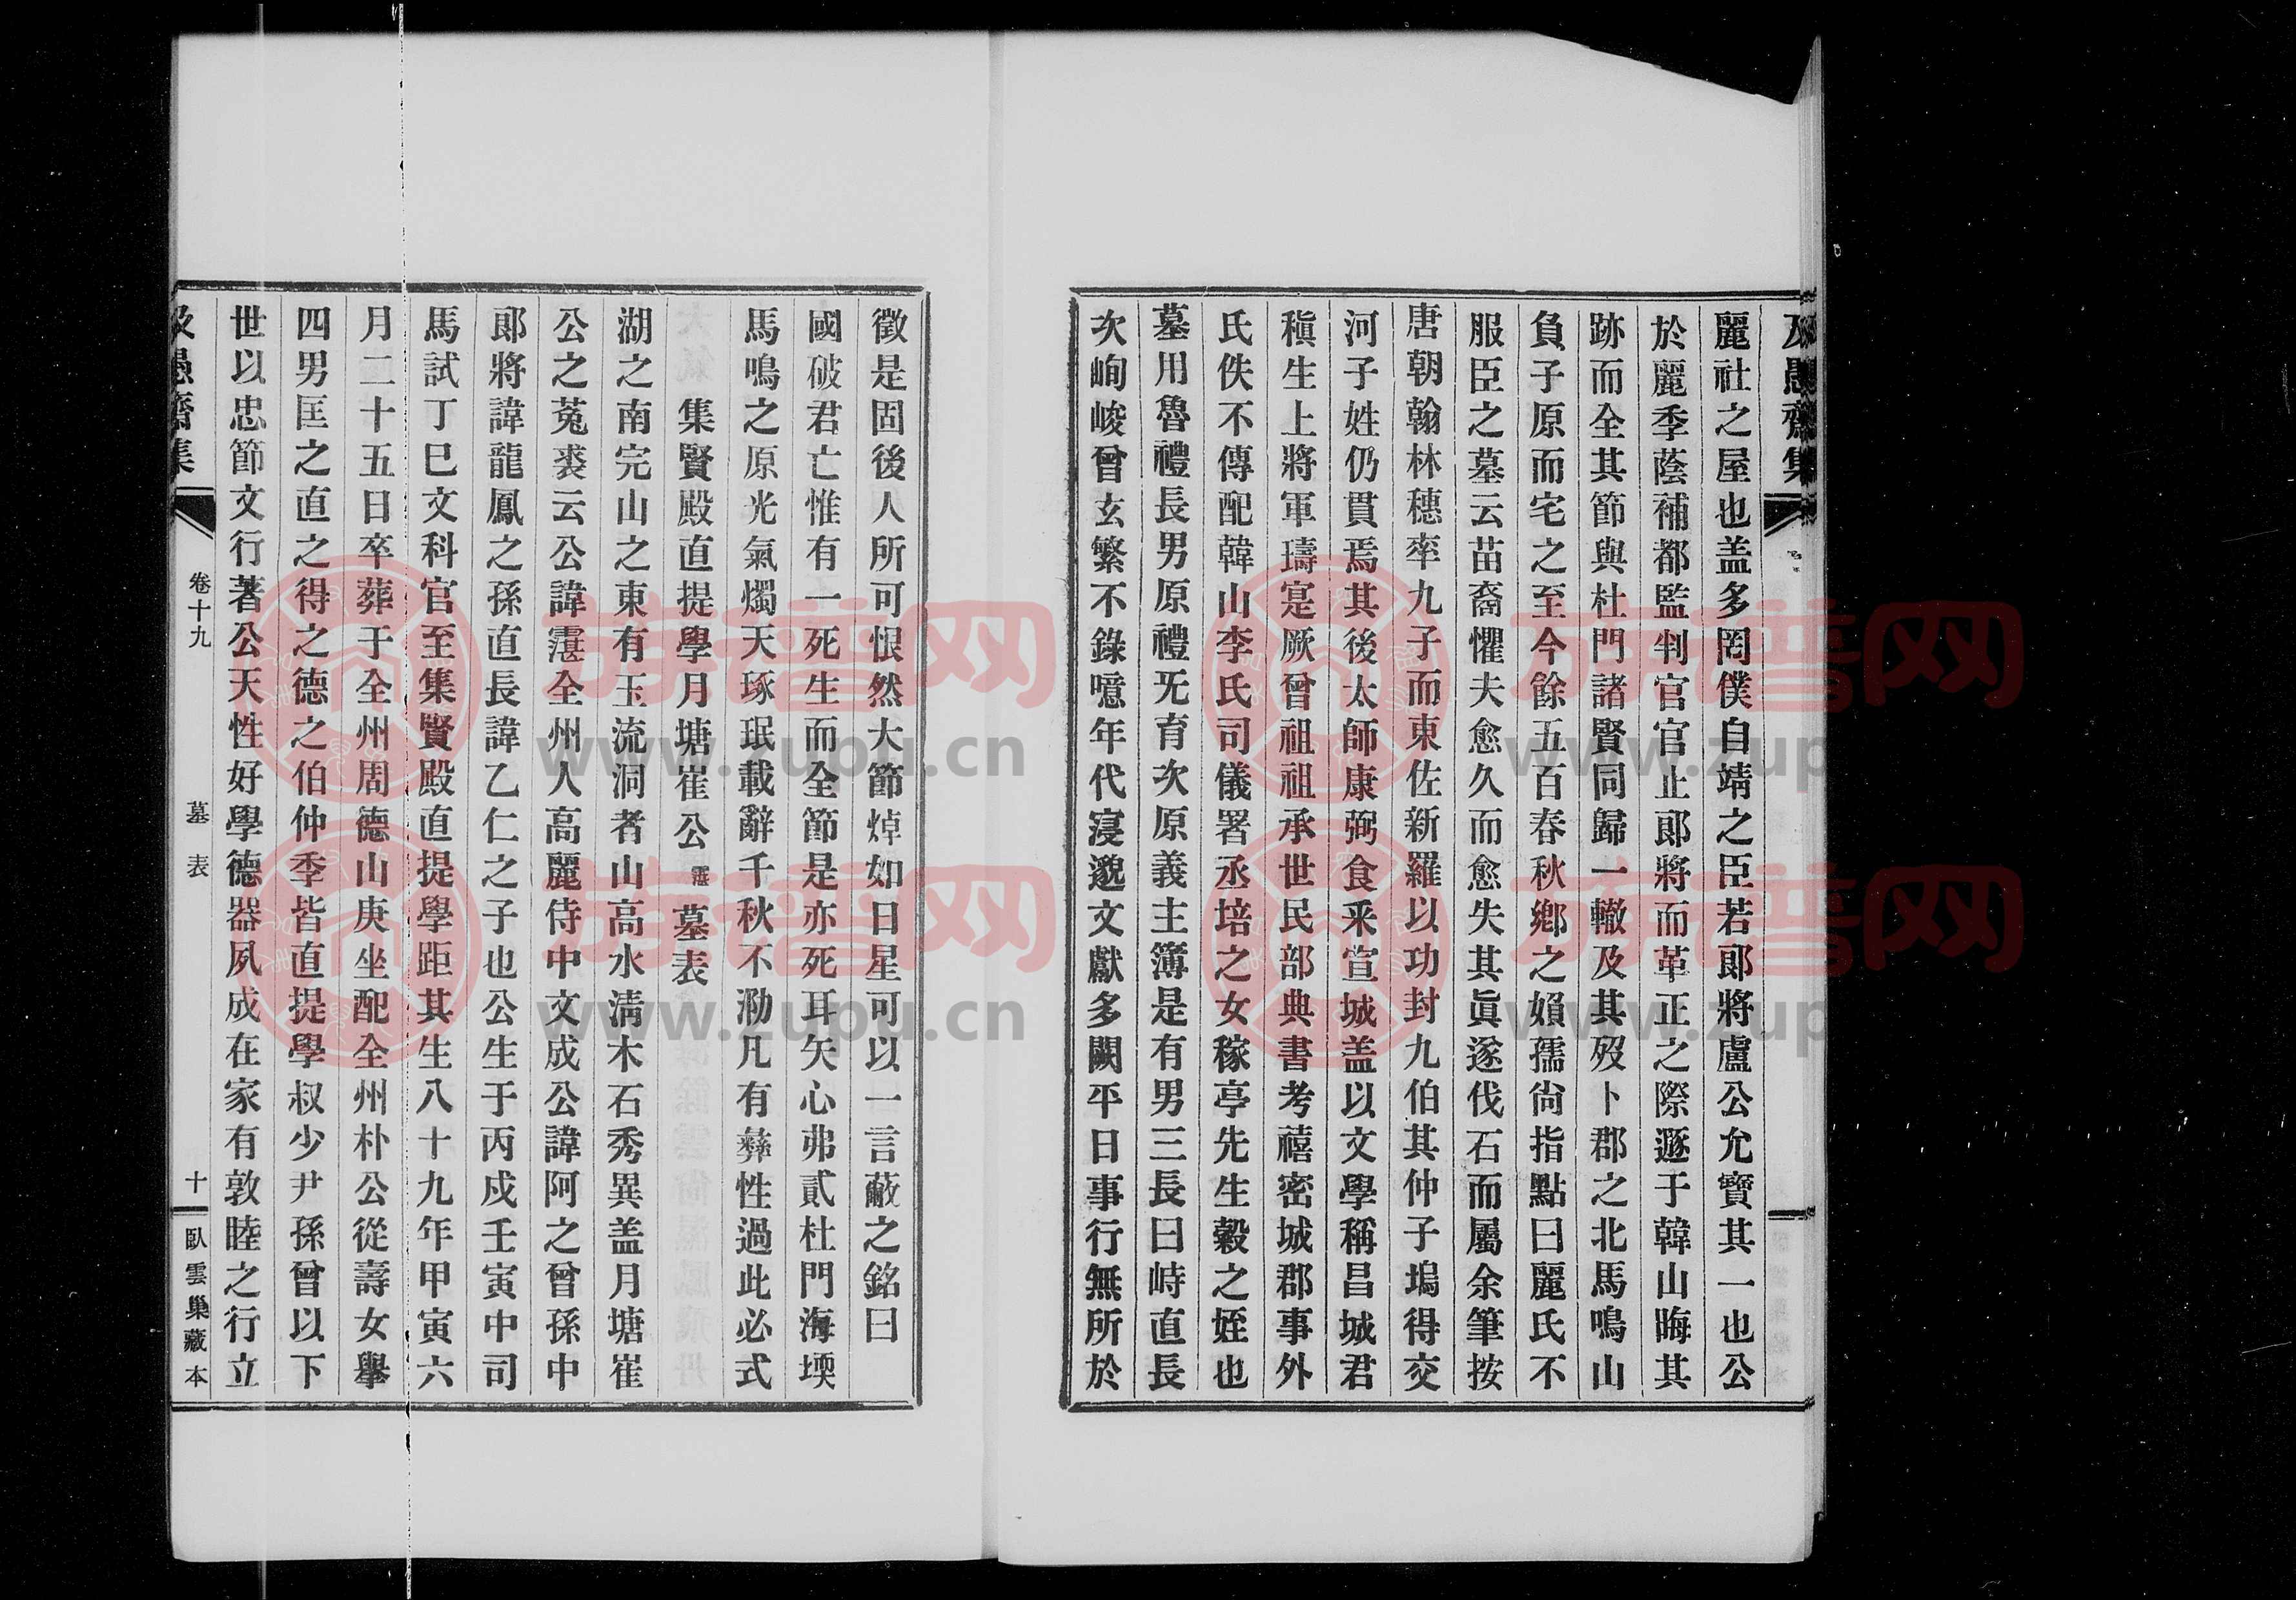 及愚齋集
麗社之屋也盖多罔僕自靖之臣若郞將盧公允寶其一也公
於麗季蔭補都監判官官止郞將而革正之際遯于韓山晦其
跡而全其節與杜門諸賢同歸一轍及其歿卜郡之北馬鳴山
負子原而宅之至今餘五百春秋鄕之嬾孺尙指點曰麗氏不
服臣之墓云苗裔懼夫愈久而愈失其眞遂伐石而屬余筆按
唐朝翰林穗率九子而東佐新羅以功封九伯其仲子塢得交
河子姓仍貫焉其後太師康弼食釆宣城盖以文學稱昌城君
稹生上將軍璹寔厥曾祖祖承世民部典書考禧密城郡事外
氏佚不傳配韓山李氏司儀署丞培之女稼亭先生穀之姪也
墓用魯禮長男原禮旡育次原義主簿是有男三長曰峙直長
次峋峻曾玄繁不錄噫年代寖邈文獻多闕平日事行無所於
徵是固後人所可恨然大節焯如日星可以一言蔽之銘曰
國破君亡惟有一死生而全節是亦死耳矢心弗貳杜門海堧
馬鳴之原光氣燭天琢珉載辭千秋不泐凡有彝性過此必式
集賢殿直提學月塘崔公霮墓表
湖之南完山之東有玉流洞者山高水淸木石秀異盖月塘崔
公之菟裘云公諱霮全州人高麗侍中文成公諱阿之曾孫中
郞將諱龍鳳之孫直長諱乙仁之子也公生于丙戌壬寅中司
馬試丁巳文科官至集賢殿直提學距其生八十九年甲寅六
月二十五日卒葬于全州周德山庚坐配全州朴公從壽女擧
四男匡之直之得之德之伯仲季皆直提學叔少尹孫曾以下
世以忠節文行著公天性好學德器夙成在家有敦睦之行立
及愚齋集
卷十九
墓表
十
臥雲巢藏本
族譜网
www.zupu.cn
族譜网
www.zupu.cn
族譜网
www.zup
族譜网
www.zup